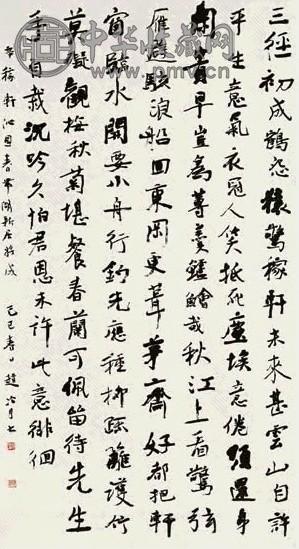 三徑初成鶴怨猿驚稼軒未來甚雲山自許
平生意氣衣冠人笑抵死塵埃意倦須還身
閑貴早豈為蓴羹鱸鱠哉秋江上看驚弦
雁避駭浪船回東岡更葺茅齋好都把軒
窗臨水開要小舟行釣先應種柳疏籬護竹
莫礙觀梅秋菊堪餐春蘭可佩留待先生
手自栽沉吟久怕君恩未許此意徘徊
辛稼軒沁園春帶湖新居將成 己巳春日 趙冷月書
中华收藏网